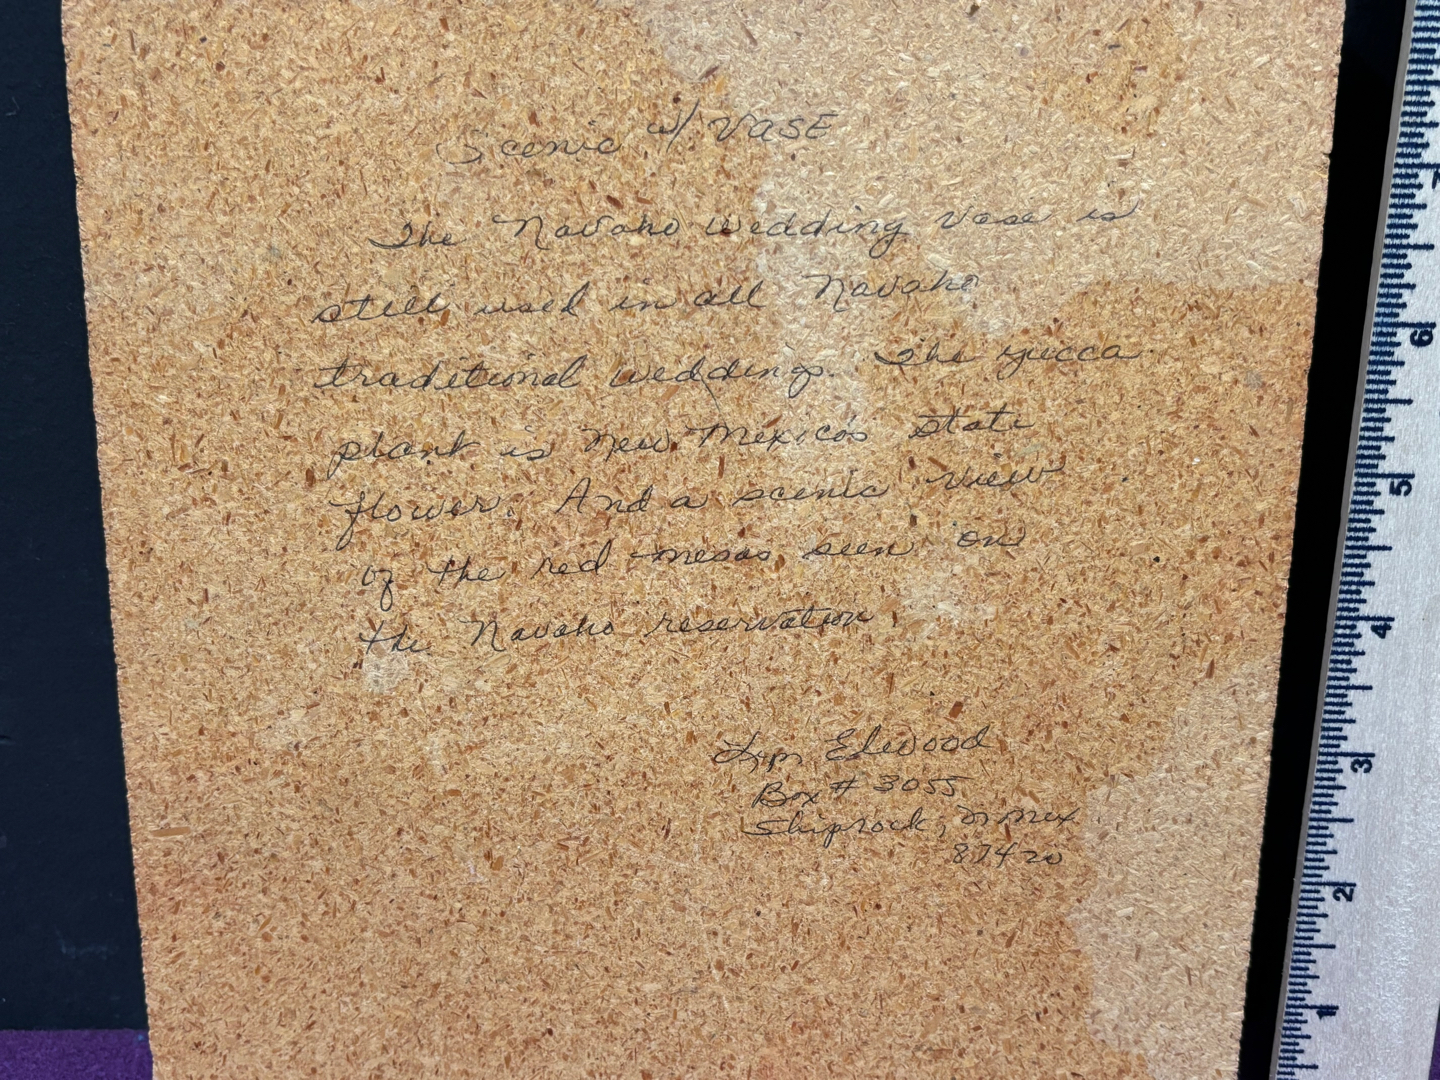 Scenic w/ VASE
The Navaho wedding vase is
still used in all Navaho
traditional weddings. The yucca
plant is New Mexico's state
flower. And a scenic view
of the red mesas seen on
the Navaho reservation
Elwood
Box # 3055
Shiprock, N Mex
87420
7
6
5
4
3
2
1